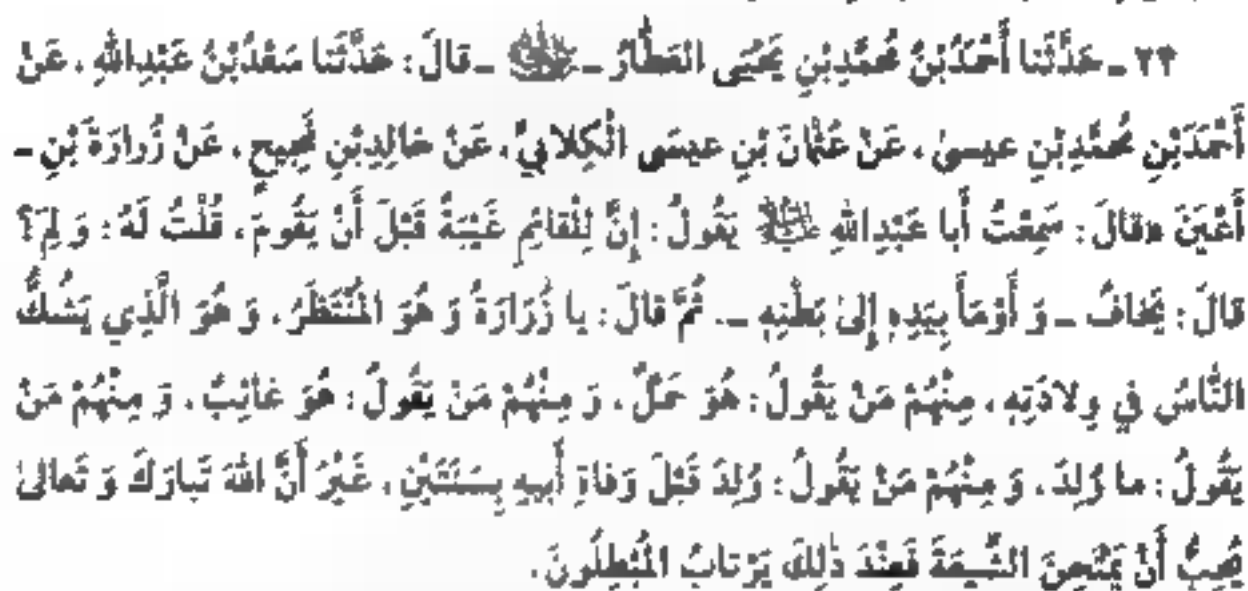 ٢٣ ـ حَدَّثَنا أَحْمَدُبْنُ مُحَمَّدِبْنِ يَحْيَى العَطَّارُ ـ ﷺ ـ قالَ: حَدَّثَنا سَعْدُبْنُ عَبْدِاللهِ، عَنْ
أَحْمَدَبْنِ مُحَمَّدِبْنِ عيسىٰ، عَنْ عُثْمانَ بْنِ عيسَى الْكِلابيِّ، عَنْ خالِدِبْنِ نَجيحٍ، عَنْ زُرارَةَ بْنِ ـ
أَعْيَنَ «قالَ: سَمِعْتُ أَبا عَبْدِاللهِ عليه السلام يَقُولُ: إِنَّ لِلْقائِمِ غَيْبَةً قَبْلَ أَنْ يَقُومَ، قُلْتُ لَهُ: وَ لِمَ؟
قالَ: يَخافُ ـ وَ أَوْمَأَ بِيَدِهِ إِلىٰ بَطْنِهِ ـ. ثُمَّ قالَ: يا زُرَارَةُ وَ هُوَ المُنْتَظَرُ، وَ هُوَ الَّذِي يَشُكُّ
النَّاسُ فِي وِلادَتِهِ، مِنْهُمْ مَنْ يَقُولُ: هُوَ حَمْلٌ، وَ مِنْهُمْ مَنْ يَقُولُ: هُوَ غائِبٌ، وَ مِنْهُمْ مَنْ
يَقُولُ: ما وُلِدَ، وَ مِنْهُمْ مَنْ يَقُولُ: وُلِدَ قَبْلَ وَفاةِ أَبيهِ بِسَنَتَيْنِ، غَيْرَ أَنَّ اللهَ تَبارَكَ وَ تَعالىٰ
يُحِبُّ أَنْ يَمْتَحِنَ الشِّيعَةَ فَعِنْدَ ذٰلِكَ يَرْتابُ المُبْطِلُونَ.